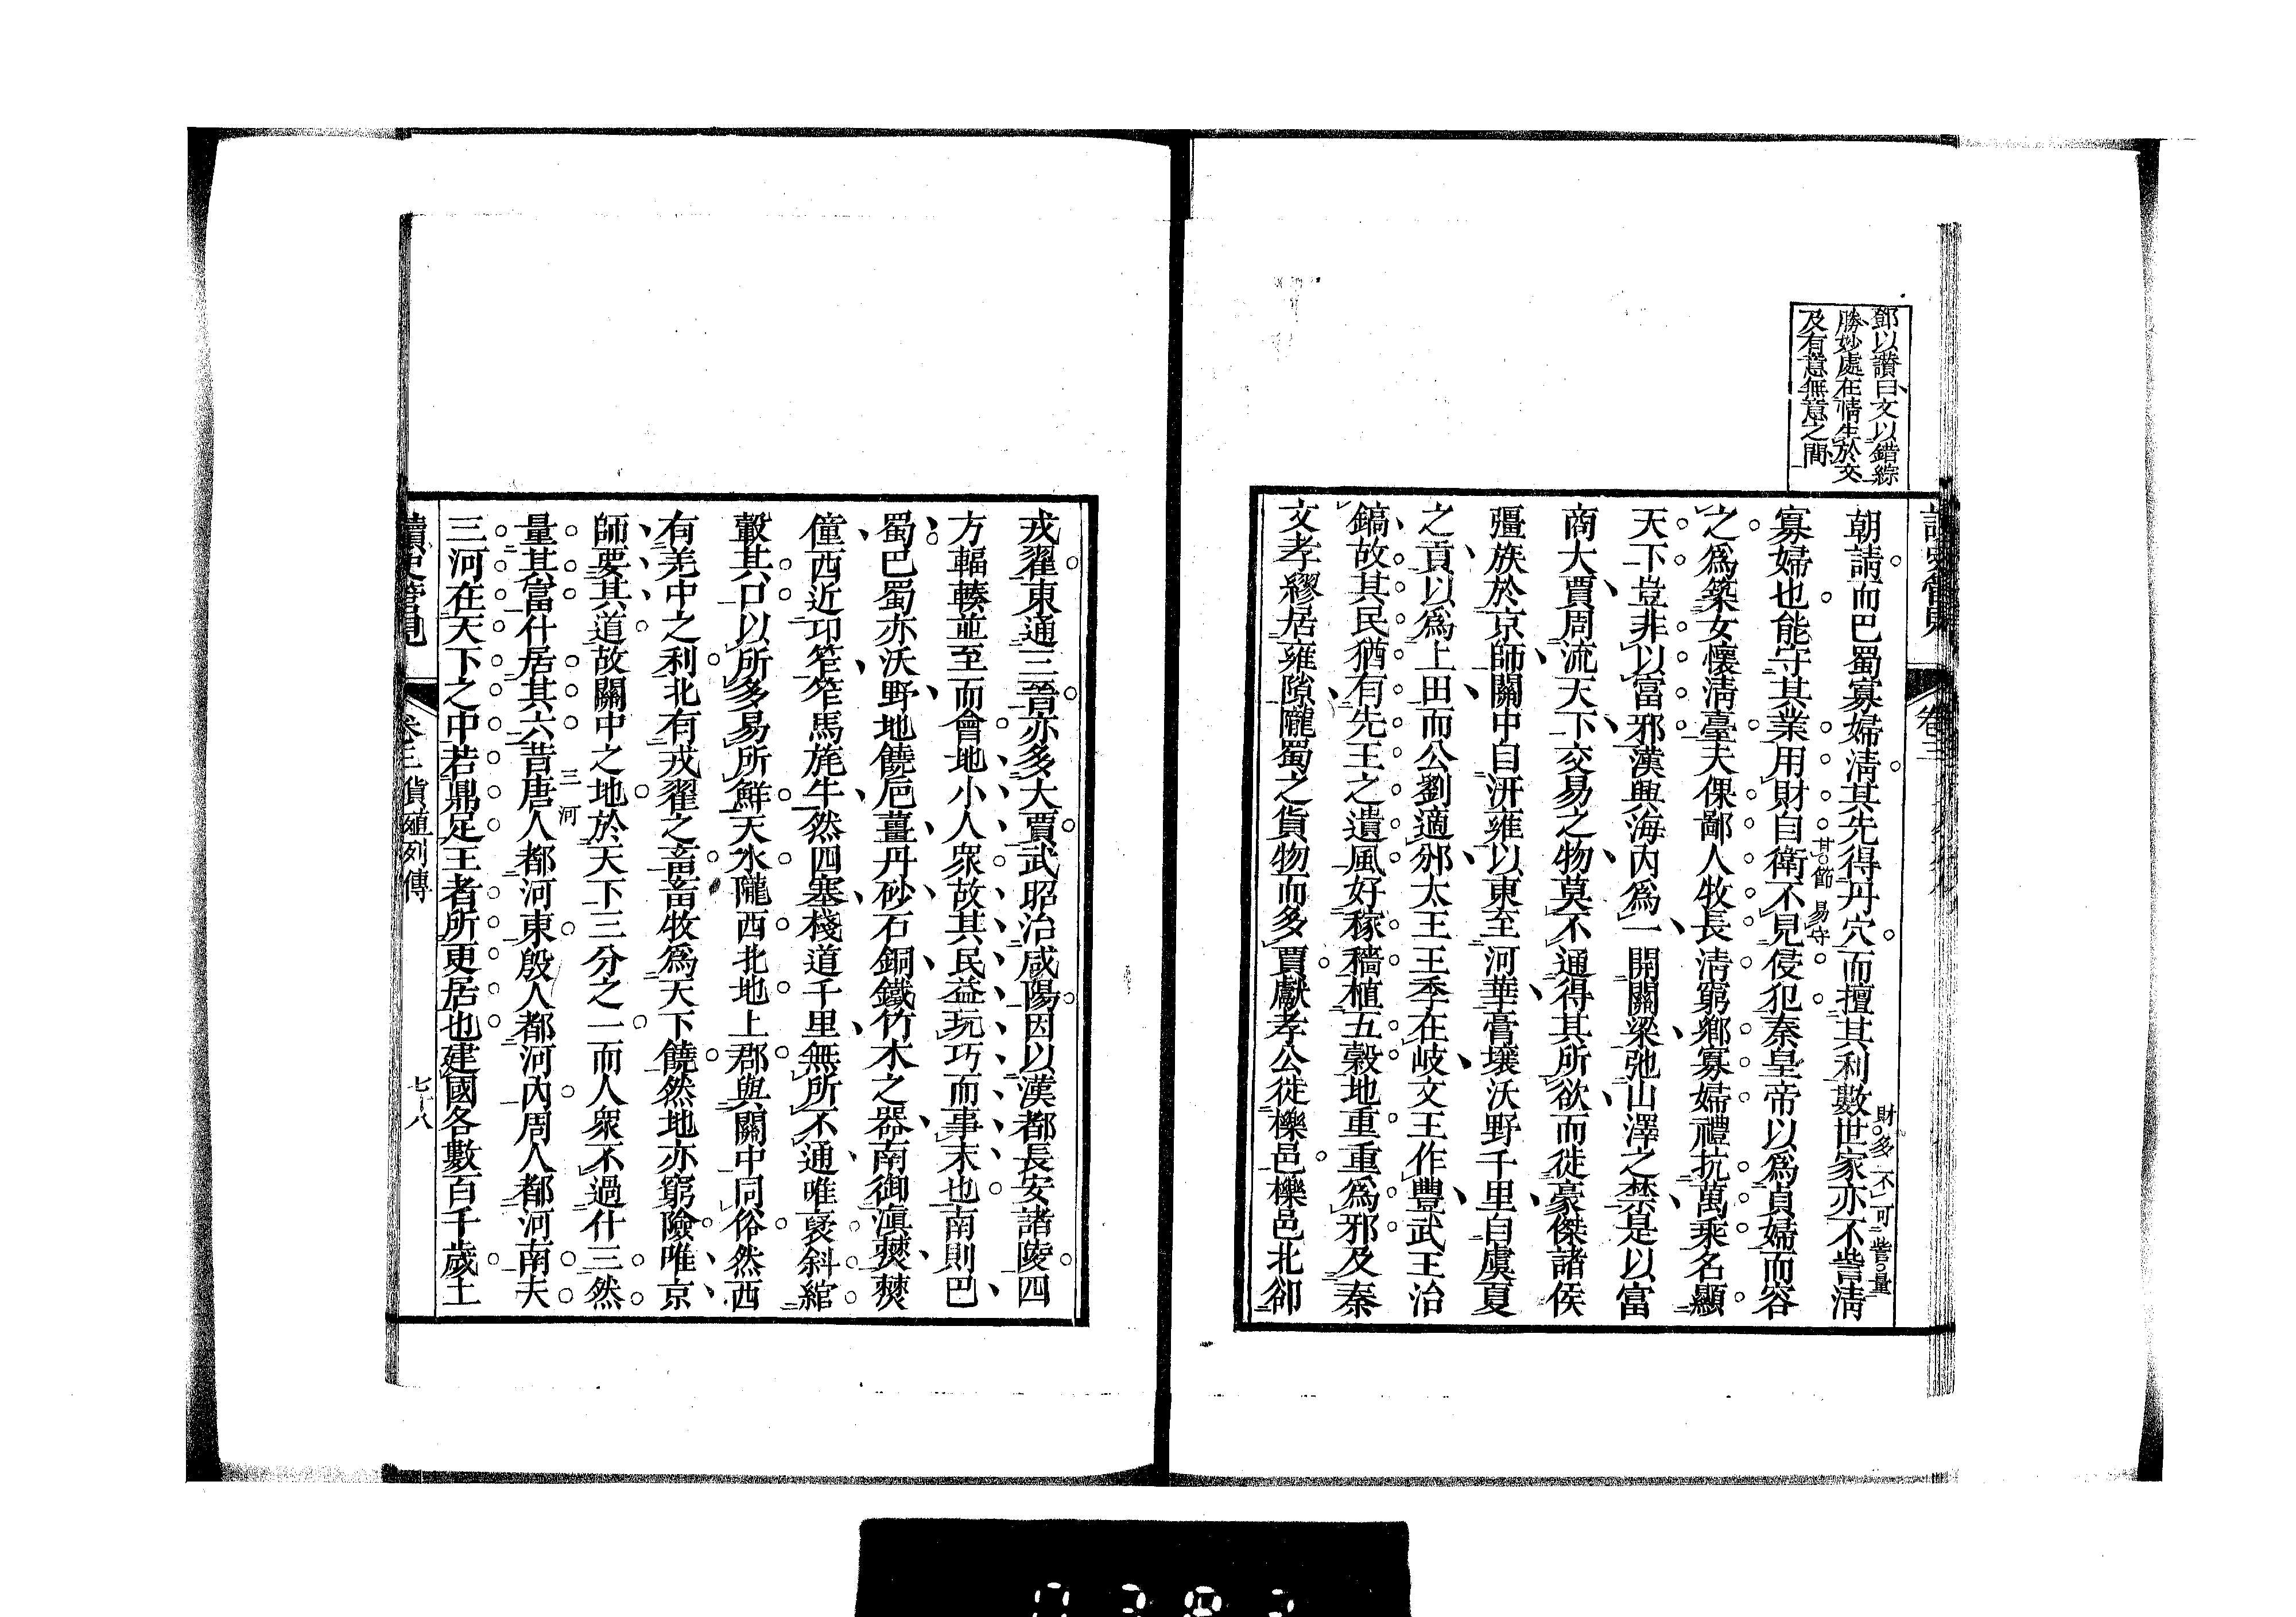 鄧以讚曰文以錯綜
勝妙處在情生於文
及有意無意之間
卷三
朝請而巴蜀寡婦淸其先得丹穴而擅其利數世家亦不訾淸
財多不可訾量
寡婦也能守其業用財自衛不見侵犯秦皇帝以爲貞婦而客
其節易守
之爲築女懷淸臺夫倮鄙人牧長淸窮鄕寡婦禮抗萬乘名顯
天下豈非以富邪漢興海內爲一開關梁弛山澤之禁是以富
商大賈周流天下交易之物莫不通得其所欲而徙豪傑諸侯
彊族於京師關中自汧雍以東至河華膏壤沃野千里自虞夏
之貢以爲上田而公劉適邠太王王季在岐文王作豐武王治
鎬故其民猶有先王之遺風好稼穡植五穀地重重爲邪及秦
文孝繆居雍隙隴蜀之貨物而多賈獻孝公徙櫟邑櫟邑北卻
戎翟東通三晉亦多大賈武昭治咸陽因以漢都長安諸陵四
方輻輳並至而會地小人衆故其民益玩巧而事末也南則巴
蜀巴蜀亦沃野地饒巵薑丹砂石銅鐵竹木之器南御滇僰僰
僮西近邛笮笮馬旄牛然四塞棧道千里無所不通唯褒斜綰
轂其口以所多易所鮮天水隴西北地上郡與關中同俗然西
有羌中之利北有戎翟之畜畜牧爲天下饒然地亦窮險唯京
師要其道故關中之地於天下三分之一而人衆不過什三然
量其富什居其六昔唐人都河東殷人都河內周人都河南夫
三河
三河在天下之中若鼎足王者所更居也建國各數百千歲土
讀史管見 卷三 貨殖列傳 七十八